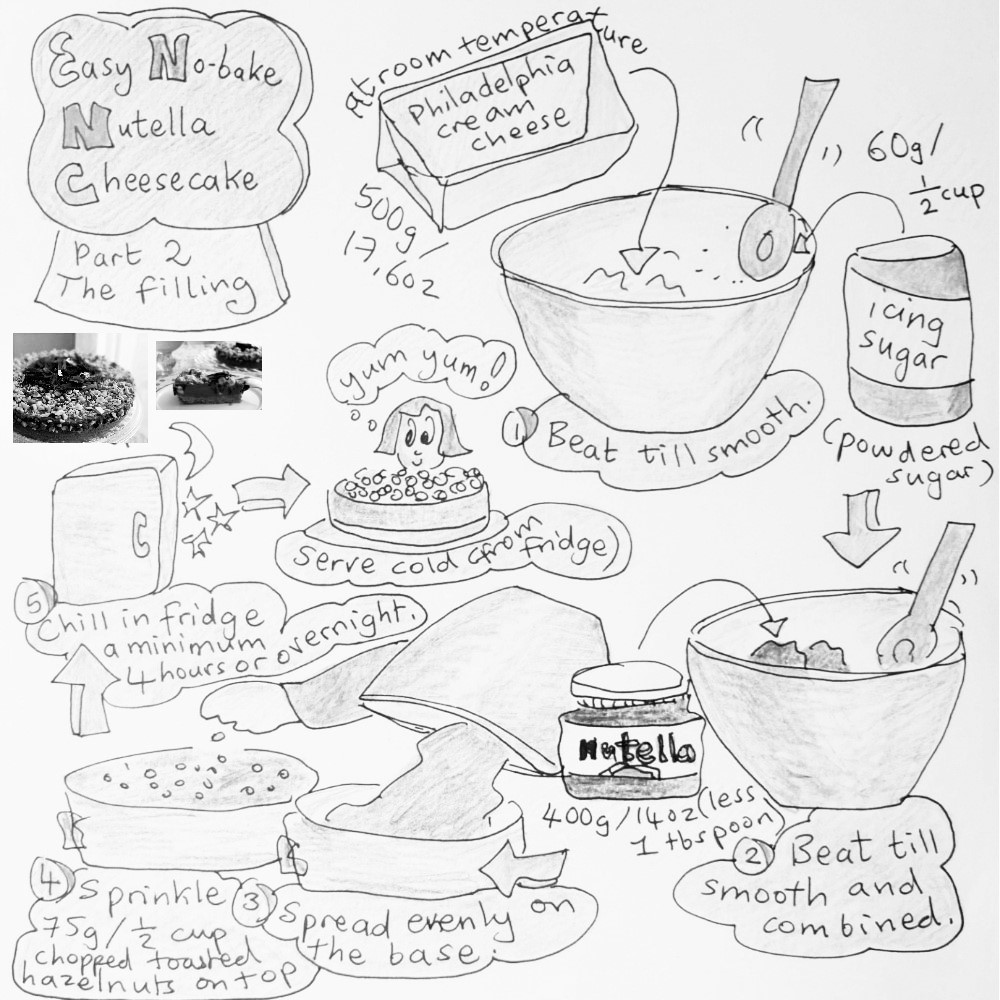 Easy No-bake
Nutella
Cheesecake
Part 2
The filling
at room temperature
Philadelphia
cream
cheese
500g/
17,60z
60g/
1/2 cup
icing
sugar
(powdered
sugar)
① Beat till smooth.
Nutella
400g/14oz(less
1 tbspoon)
② Beat till
smooth and
combined.
③ Spread evenly on
the base.
④ Sprinkle
75g/1/2 cup
chopped toasted
hazelnuts on top
⑤ Chill in fridge
a minimum
4 hours or overnight.
yum yum!
Serve cold (from
fridge)